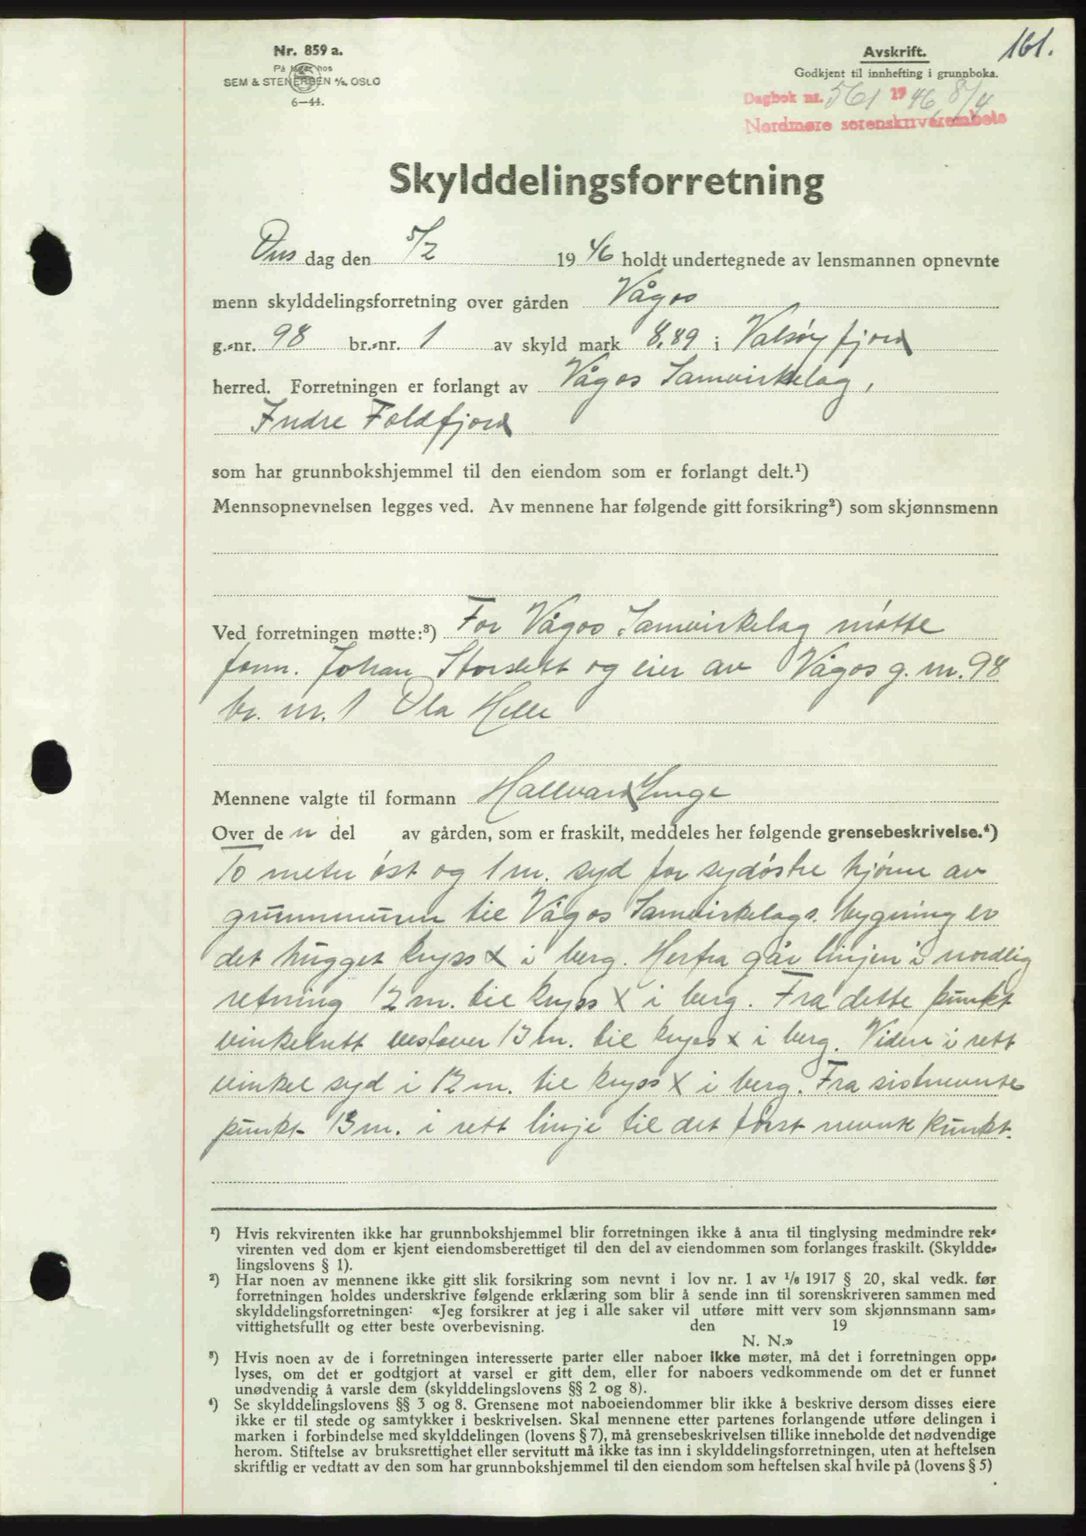 161.
Nr. 859 a.
På lager hos
SEM & STENERSEN A/S, OSLO
6—44.
Avskrift.
Godkjent til innhefting i grunnboka.
Dagbok nr. 561 1946, 8/4
Nordmøre sorenskriverembete
Skylddelingsforretning
Ons dag den 5/2 1946 holdt undertegnede av lensmannen opnevnte
menn skylddelingsforretning over gården Vågos
g.-nr. 98 br.-nr. 1 av skyld mark 8,89 i Valsøyfjord
herred. Forretningen er forlangt av Vågos Samvirkelag,
Indre Foldfjord
som har grunnbokshjemmel til den eiendom som er forlangt delt.¹)
Mennsopnevnelsen legges ved. Av mennene har følgende gitt forsikring²) som skjønnsmenn
Ved forretningen møtte:³) For Vågos Samvirkelag møtte
form. Johan og eier av Vågos g. nr. 98
br. nr. 1 Ola Helle
Mennene valgte til formann Hallvard Enge
Over den del av gården, som er fraskilt, meddeles her følgende grensebeskrivelse.⁴)
10 meter øst og 1 m. syd for sydøstre hjørne av
grunnmuren til Vågos Samvirkelags bygning er
det hugget kryss X i berg. Herfra går linjen i nordlig
retning 12 m. til kryss X i berg. Fra dette punkt
vinkelrett vestover 13 m. til kryss X i berg. Videre i rett
vinkel syd i 12 m. til kryss X i berg. Fra sistnevnte
punkt 13 m. i rett linje til det først nevnte punkt.
¹) Hvis rekvirenten ikke har grunnbokshjemmel blir forretningen ikke å anta til tinglysing medmindre rek-
virenten ved dom er kjent eiendomsberettiget til den del av eiendommen som forlanges fraskilt. (Skyldde-
lingslovens § 1).
²) Har noen av mennene ikke gitt slik forsikring som nevnt i lov nr. 1 av 1/6 1917 § 20, skal vedk. før
forretningen holdes underskrive følgende erklæring som blir å sende inn til sorenskriveren sammen med
skylddelingsforretningen: «Jeg forsikrer at jeg i alle saker vil utføre mitt verv som skjønnsmann sam-
vittighetsfullt og etter beste overbevisning. den 19
N. N.»
³) Hvis noen av de i forretningen interesserte parter eller naboer ikke møter, må det i forretningen opp-
lyses, om det er godtgjort at varsel er gitt dem, eller for naboers vedkommende om det er funnet
unødvendig å varsle dem (skylddelingslovens §§ 2 og 8).
⁴) Se skylddelingslovens §§ 3 og 8. Grensene mot naboeiendommer blir ikke å beskrive dersom disses eiere
ikke er til stede og samtykker i beskrivelsen. Skal mennene etter partenes forlangende utføre delingen i
marken i forbindelse med skylddelingen (lovens § 7), må grensebeskrivelsen tillike inneholde det nødvendige
herom. Stiftelse av bruksrettighet eller servitutt må ikke tas inn i skylddelingsforretningen, uten at heftelsen
skriftlig er vedtatt av den som har grunnbokshjemmel til den eiendom som heftelsen skal hvile på (lovens § 5)